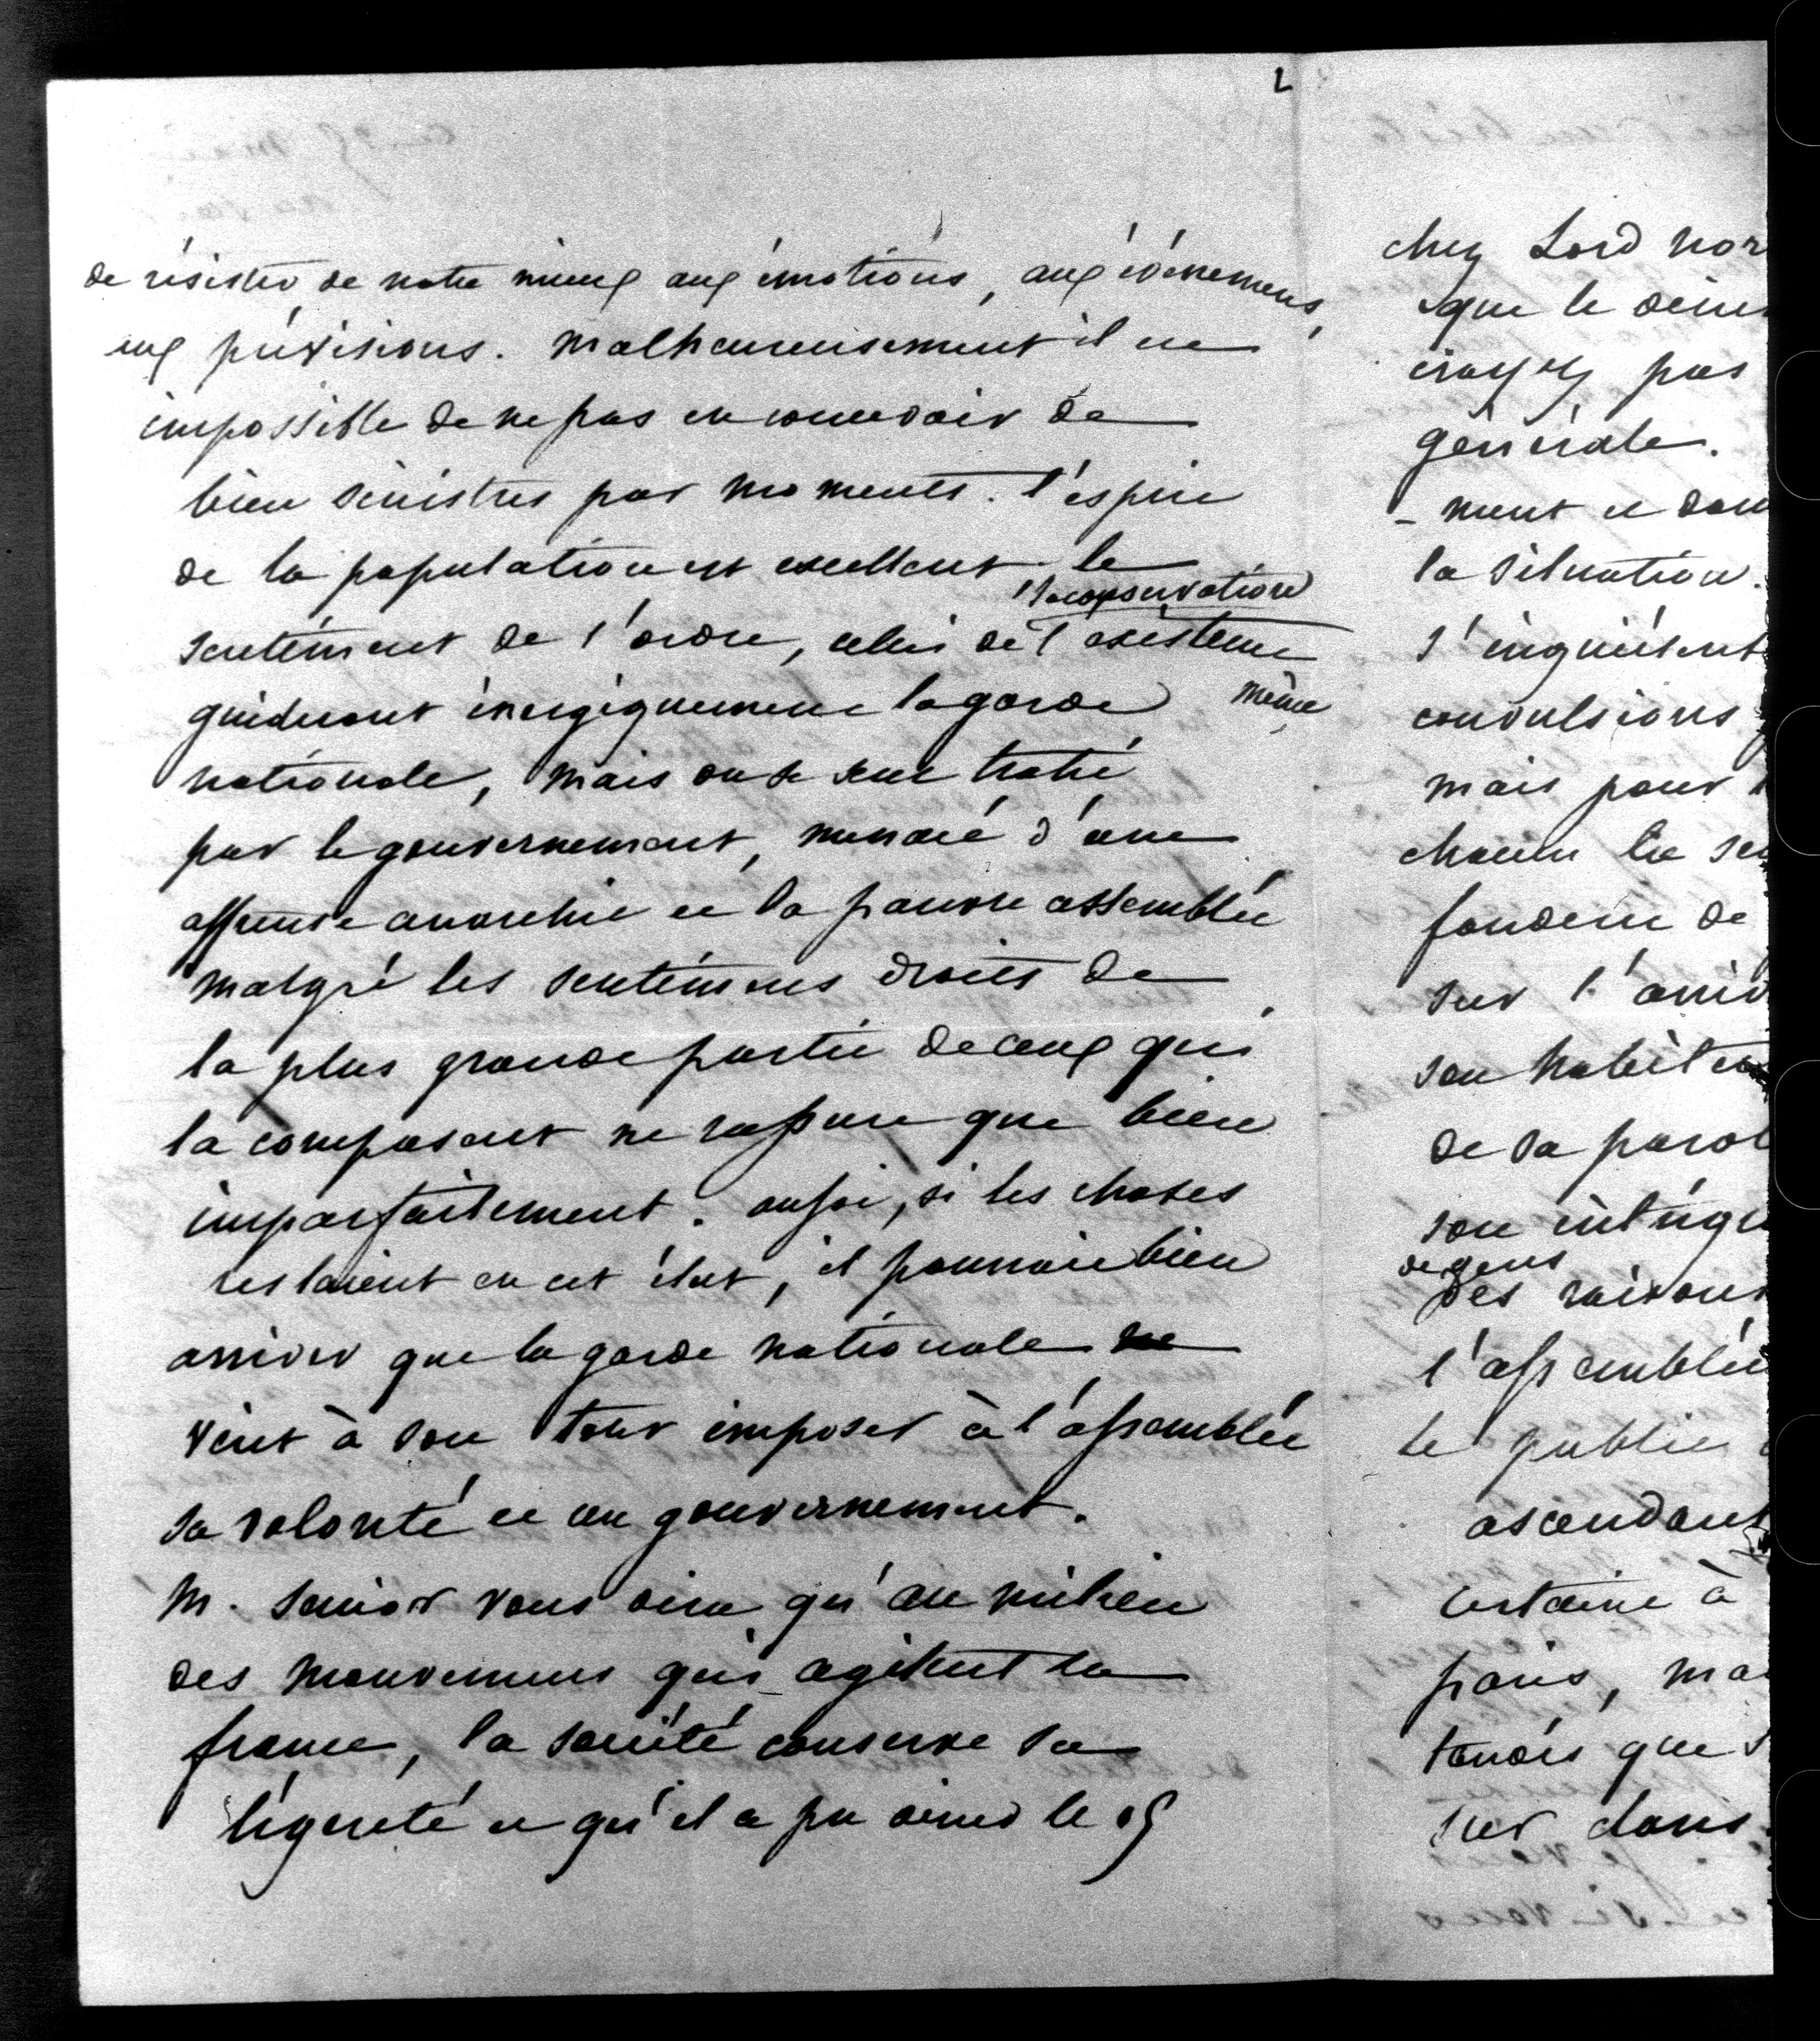 2
de résister de notre mieux aux émotions, aux évènemens,
aux prévisions. Malheureusement il est
impossible de ne pas en concevoir de
bien sinistres par moments. l'esprit
de la population est excellent. le
sentiment de l'ordre, celui de l'existence
la conservation
même
guideront énergiquement la garde
nationale, mais on se sent trahi
par le gouvernement, menacé d'une
affreuse anarchie et la pauvre assemblée
malgré les sentimens droits de
la plus grande partie de ceux qui
la composent ne rassure que bien
imparfaitement. aussi, si les choses
restaient en cet état, il pourrait bien
arriver que la garde nationale ne
vint à son tour imposer à l'assemblée
sa volonté et un gouvernement.
M. Senior vous dira qu'au milieu
des mouvemens qui agitent la
france, la société conserve sa
légereté et qu'il a pu diner le 15
chez Lord Nor
que le dîner
croyez pas
générale.
-ment et dou
la situation.
s'inquiètent
convulsions
mais pour
chacun la
de
sur l'
son
de sa parol
son intégr
de gens
des raisons
l'assemblée
le public
ascendant
certaine à
paris, ma
tandis que
sur dans